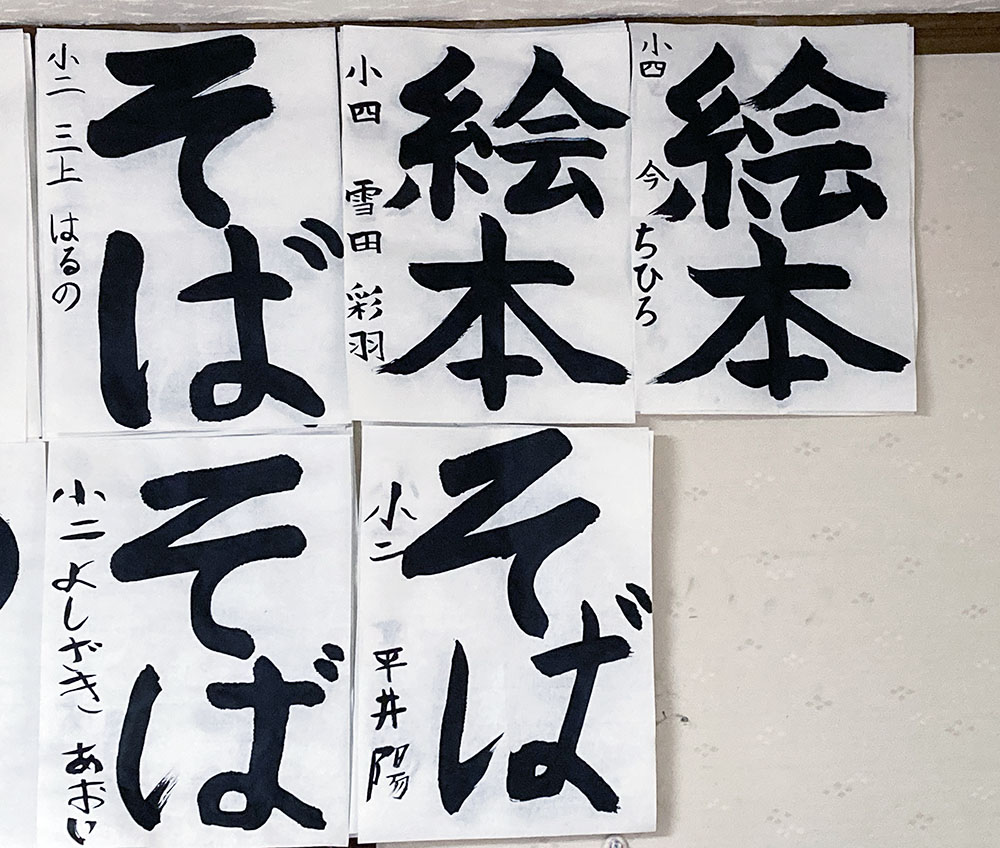 そば
小二 三上 はるの
絵本
小四 雪田 彩羽
絵本
小四 今 ちひろ
そば
小二 よしざき あおい
そば
小二 平井 陽